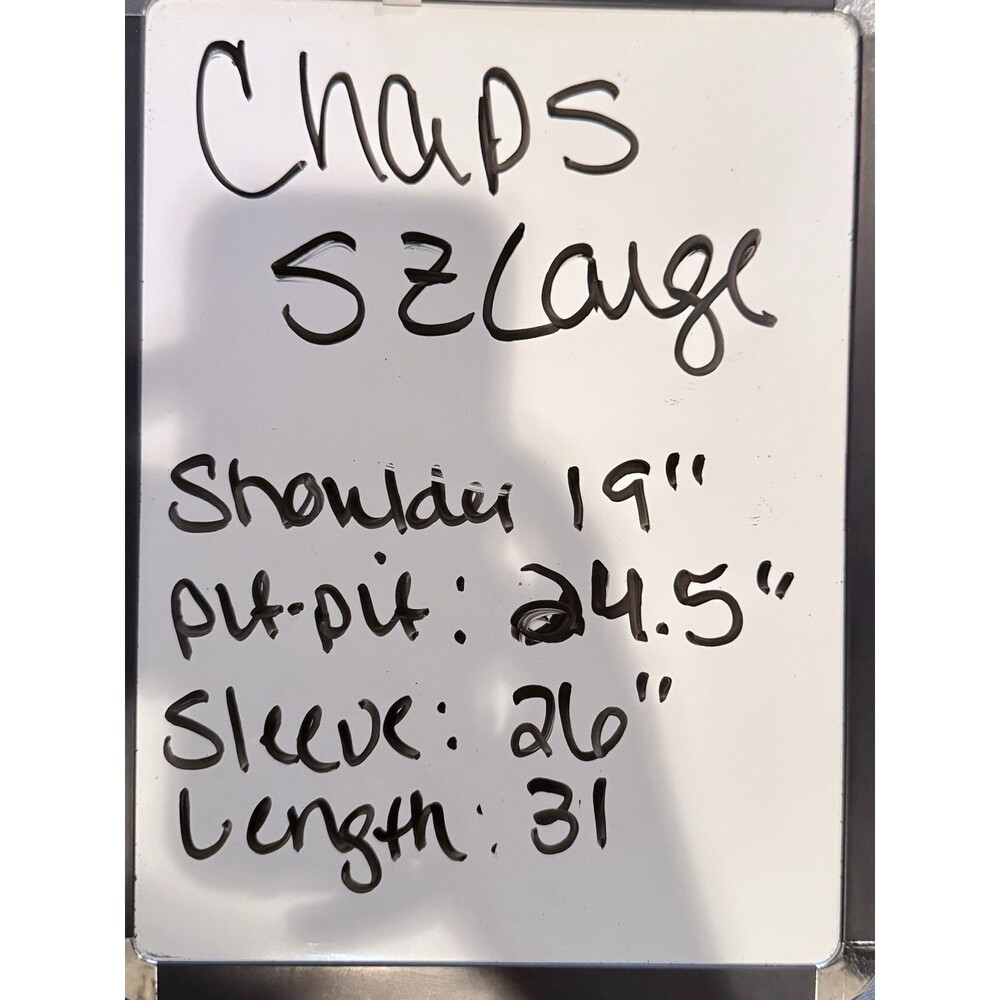 Chaps
SZ Large
Shoulder 19"
pit-pit: 24.5"
Sleeve: 26"
Length: 31